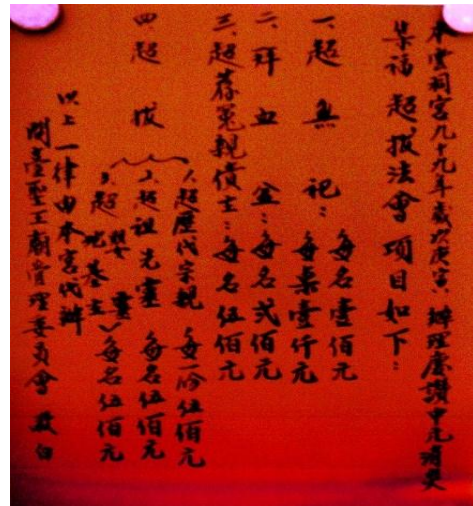 本雲祠宮九十九年歲次庚寅、辦理慶讚中元消災
集福 超拔法會 項目如下：
一、超無祀：每名壹佰元
每桌壹仟元
二、拜血盆：每名弍佰元
三、超荐冤親債主：每名伍佰元
四、超拔
1、超歷代宗親 每一份伍佰元
2、超祖先靈 每名伍佰元
3、超嬰靈 地基主 每名伍佰元
以上一律由本宮代辦
開臺聖王廟管理委員會 啟白